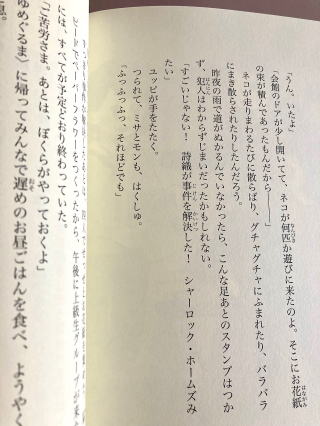 「うん。いたよ」
「会館のドアが少し開いてて、ネコが何匹か遊びに来たのよ。そこにお花紙
の束が積んであったもんだから――」
ネコが走りまわるたびに散らばり、グチャグチャにふまれたり、バラバラ
にまき散らされたりしたんだろう。
昨夜の雨で道がぬかるんでいなかったら、こんな足あとのスタンプはつか
ず、犯人はわからずじまいだったかもしれない。
「すごいじゃない! 詩織が事件を解決した! シャーロック・ホームズみ
たい」
ユッピが手をたたく。
つられて、ミサとモンも、はくしゅ。
「ふっふっふっ、それほどでも」
ピードでペーパーフラワーをつくったから、午後に上級生グループが来た
には、すべてが予定どおり終わっていた。
「ご苦労さま。あとは、ぼくらがやっておくよ」
ゆめぐるま〉に帰ってみんなで遅めのお昼ごはんを食べ、ようやく
息。